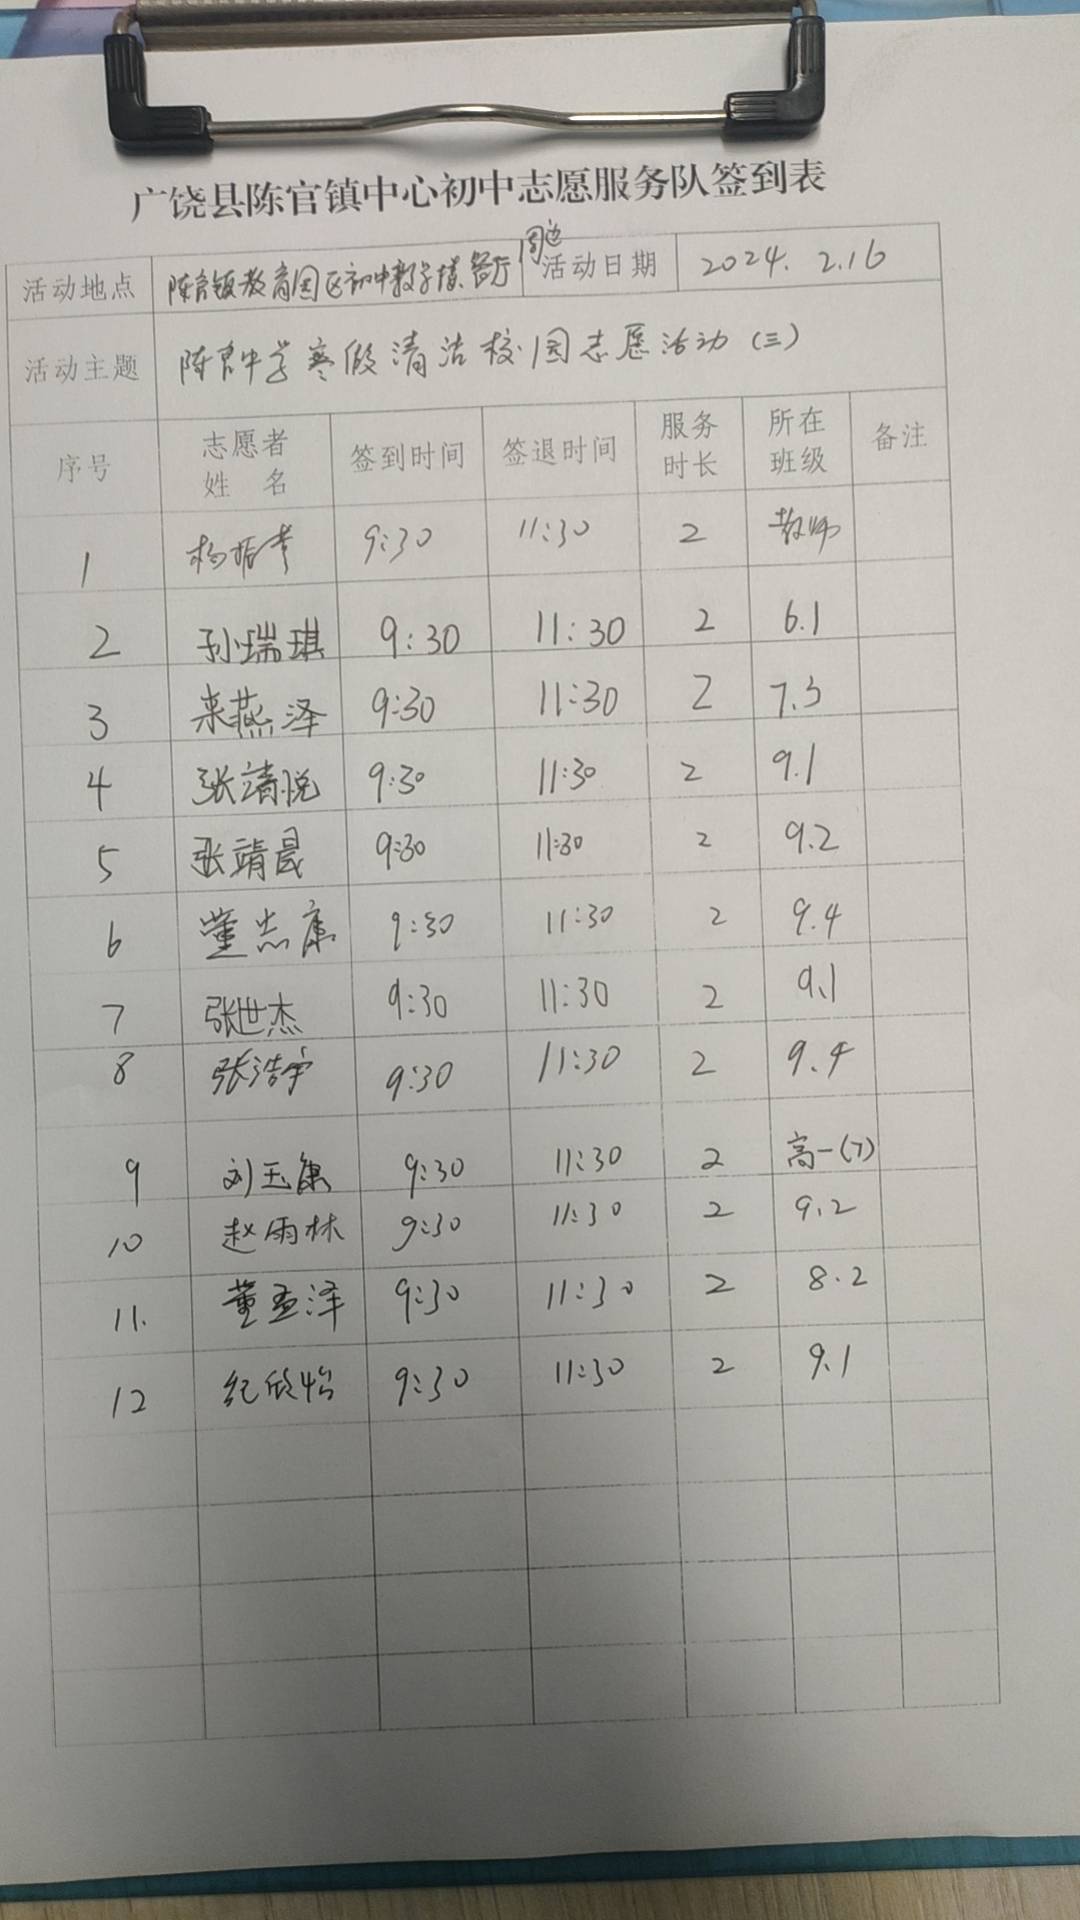 广饶县陈官镇中心初中志愿服务队签到表
活动地点 陈官镇教育园区初中教学楼、餐厅周边 活动日期 2024. 2.16
活动主题 陈官中学寒假清洁校园志愿活动（三）
序号 志愿者姓 名 签到时间 签退时间 服务时长 所在班级 备注
1 杨振孝 9:30 11:30 2 教师
2 孙瑞琪 9:30 11:30 2 6.1
3 来燕泽 9:30 11:30 2 7.3
4 张靖悦 9:30 11:30 2 9.1
5 张靖晨 9:30 11:30 2 9.2
6 董志康 9:30 11:30 2 9.4
7 张世杰 9:30 11:30 2 9.1
8 张浩宇 9:30 11:30 2 9.4
9 刘玉康 9:30 11:30 2 高一(7)
10 赵雨林 9:30 11:30 2 9.2
11. 董孟泽 9:30 11:30 2 8.2
12 纪欣怡 9:30 11:30 2 9.1